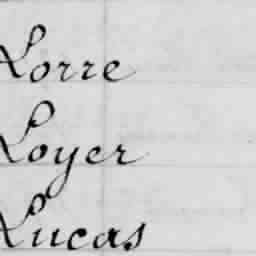 Lorre
Loyer
Lucas